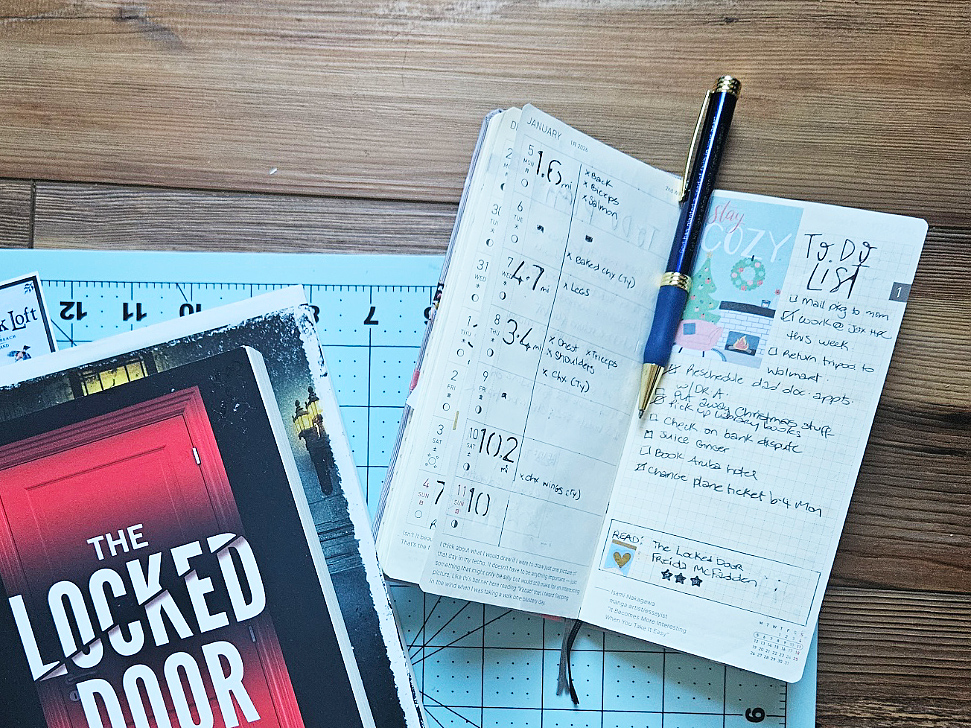 JANUARY
5
MON
1.6 mi
x Back
x Biceps
x Salmon
6
TUE
7
WED
4.7 mi
x Baked chx (Ty)
x Legs
8
THU
3.4 mi
x Chest x Triceps
x Shoulders
x Chx (Ty)
9
FRI
10
SAT
10.2 mi
x chx wings (Ty)
11
SUN
10
31
2
FRI
3
SAT
4
SUN
7
stay
COZY
TO.DO
LIST
1
mail pkg to mom
work @
this week
Return tripod to
Walmart
Reschedule dad doc appts.
w/ DR. A.
Put away Christmas stuff
Pick up library books
Check on bank dispute
Juice Ginger
Book Aruba hotel
Change plane ticket b-4 Mon
READ:
The Locked Door
Freida McFadden
"It Becomes More Interesting
When You Take It Easy"
M T W T F S S
12 11 10 9 8 7 6
THE
LOCKED
DOOR
k Loft